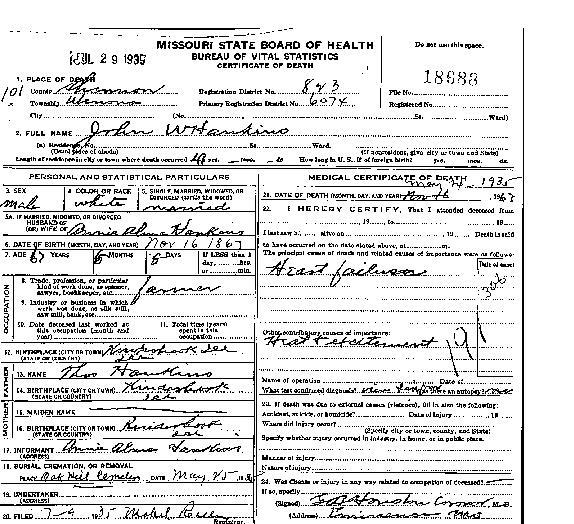 MISSOURI STATE BOARD OF HEALTH
BUREAU OF VITAL STATISTICS
CERTIFICATE OF DEATH
Do not use this space.
JUL 29 1935
18688
1. PLACE OF DEATH
County Shannon Registration District No. 843 File No.
Township Primary Registration District No. 6074 Registered No.
City (No. St. Ward)
2. FULL NAME John W Hankins
(a) Residence, No. St. Ward.
(Usual place of abode) (If nonresident, give city or town and State)
Length of residence in city or town where death occurred yrs. mos. ds. How long in U. S., if of foreign birth? yrs. mos. ds.
PERSONAL AND STATISTICAL PARTICULARS
3. SEX male
4. COLOR OR RACE white
5. SINGLE, MARRIED, WIDOWED, OR DIVORCED (write the word) married
5A. IF MARRIED, WIDOWED, OR DIVORCED
HUSBAND OF
(OR) WIFE OF Annie Hankins
6. DATE OF BIRTH (MONTH, DAY, AND YEAR) Nov 16 1867
7. AGE 67 YEARS 6 MONTHS 8 DAYS If LESS than 1 day, hrs. or min.
OCCUPATION
8. Trade, profession, or particular kind of work done, as spinner, sawyer, bookkeeper, etc. farmer
9. Industry or business in which work was done, as silk mill, saw mill, bank, etc.
10. Date deceased last worked at this occupation (month and year)
11. Total time (years) spent in this occupation
12. BIRTHPLACE (CITY OR TOWN) Kinderhook Ill
(STATE OR COUNTRY)
FATHER
13. NAME Thos Hankins
14. BIRTHPLACE (CITY OR TOWN) Kinderhook
(STATE OR COUNTRY) Ill
MOTHER
15. MAIDEN NAME
16. BIRTHPLACE (CITY OR TOWN) Kinderhook
(STATE OR COUNTRY) Ill
17. INFORMANT Annie Hankins
(ADDRESS)
18. BURIAL, CREMATION, OR REMOVAL
PLACE Oak Hill Cemetery DATE May 25
19. UNDERTAKER
(ADDRESS)
20. FILED 7-9 1935
Registrar.
MEDICAL CERTIFICATE OF DEATH
21. DATE OF DEATH (MONTH, DAY, AND YEAR) May 24 1935
22. I HEREBY CERTIFY, That I attended deceased from
I last saw h alive on Death is said
to have occurred on the date stated above, at m.
The principal cause of death and related causes of importance were as follows:
Date of onset
Heart failure
Other contributory causes of importance:
Heat & excitement
191
Name of operation Date of
What test confirmed diagnosis? Was there an autopsy?
23. If death was due to external causes (violence), fill in also the following:
Accident, suicide, or homicide? Date of injury 19
Where did injury occur?
(Specify city or town, county, and State)
Specify whether injury occurred in industry, in home, or in public place.
Manner of injury
Nature of injury
24. Was disease or injury in any way related to occupation of deceased?
If so, specify
(Signed) Coroner, M.D.
(Address) Eminence Mo